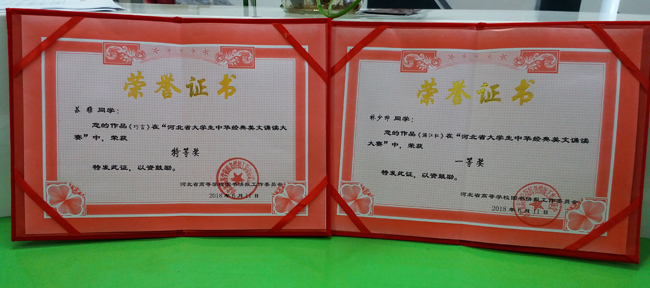 荣誉证书
同学：
您的作品《行宫》在“河北省大学生中华经典美文诵读大
赛”中，荣获
特等奖
特发此证，以资鼓励。
河北省高等学校图书情报工作委员会
2018年6月11日
荣誉证书
林少华 同学：
您的作品《满江红》在“河北省大学生中华经典美文诵读
大赛”中，荣获
一等奖
特发此证，以资鼓励。
河北省高等学校图书情报工作委员会
2018年6月11日